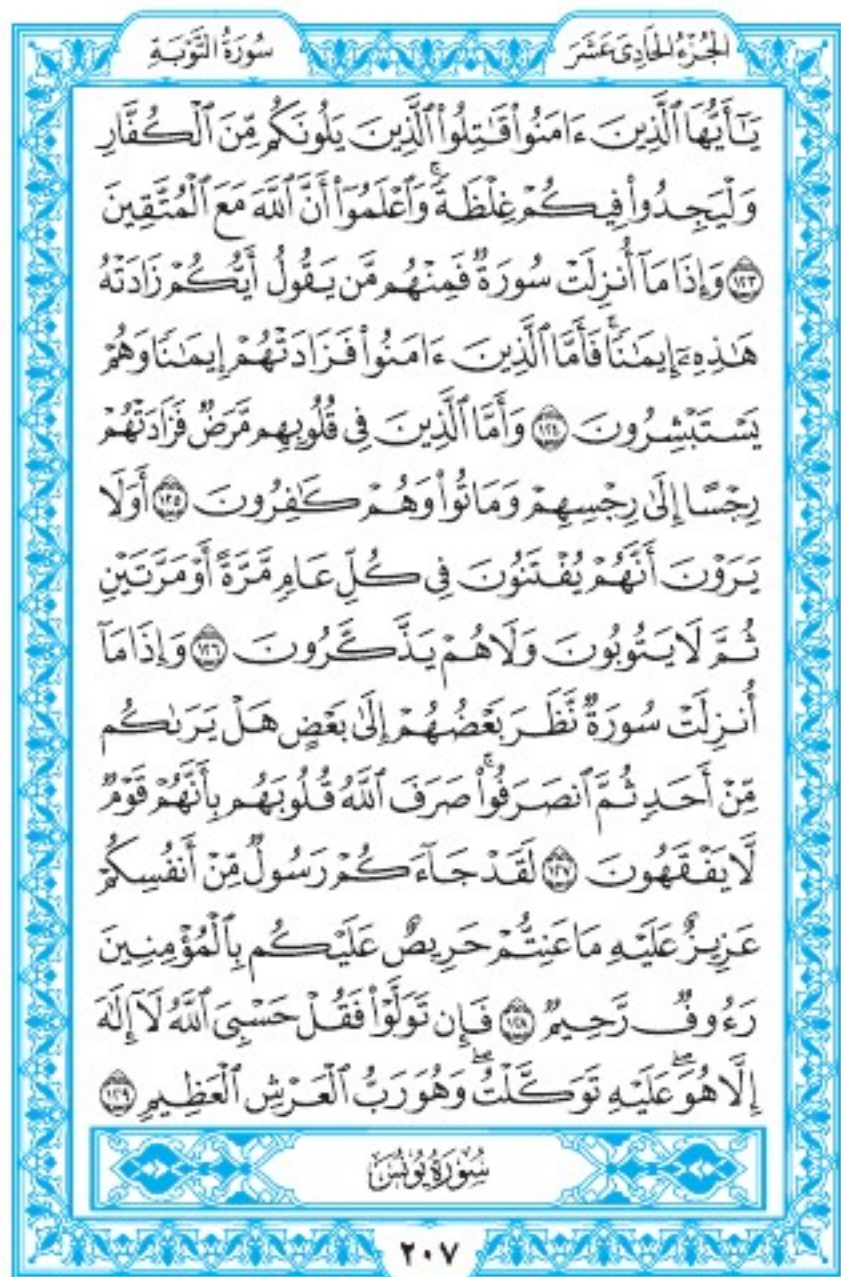 الجُزْءُ الحَادِى عَشَرَ
سُورَةُ التَّوْبَةِ
يَـٰٓأَيُّهَا ٱلَّذِينَ ءَامَنُوا۟ قَـٰتِلُوا۟ ٱلَّذِينَ يَلُونَكُم مِّنَ ٱلْكُفَّارِ
وَلْيَجِدُوا۟ فِيكُمْ غِلْظَةً ۚ وَٱعْلَمُوٓا۟ أَنَّ ٱللَّهَ مَعَ ٱلْمُتَّقِينَ
۝١٢٣ وَإِذَا مَآ أُنزِلَتْ سُورَةٌ فَمِنْهُم مَّن يَقُولُ أَيُّكُمْ زَادَتْهُ
هَـٰذِهِۦٓ إِيمَـٰنًا ۚ فَأَمَّا ٱلَّذِينَ ءَامَنُوا۟ فَزَادَتْهُمْ إِيمَـٰنًا وَهُمْ
يَسْتَبْشِرُونَ ۝١٢٤ وَأَمَّا ٱلَّذِينَ فِى قُلُوبِهِم مَّرَضٌ فَزَادَتْهُمْ
رِجْسًا إِلَىٰ رِجْسِهِمْ وَمَاتُوا۟ وَهُمْ كَـٰفِرُونَ ۝١٢٥ أَوَلَا
يَرَوْنَ أَنَّهُمْ يُفْتَنُونَ فِى كُلِّ عَامٍ مَّرَّةً أَوْ مَرَّتَيْنِ
ثُمَّ لَا يَتُوبُونَ وَلَا هُمْ يَذَّكَّرُونَ ۝١٢٦ وَإِذَا مَآ
أُنزِلَتْ سُورَةٌ نَّظَرَ بَعْضُهُمْ إِلَىٰ بَعْضٍ هَلْ يَرَىٰكُم
مِّنْ أَحَدٍ ثُمَّ ٱنصَرَفُوا۟ ۚ صَرَفَ ٱللَّهُ قُلُوبَهُم بِأَنَّهُمْ قَوْمٌ
لَّا يَفْقَهُونَ ۝١٢٧ لَقَدْ جَآءَكُمْ رَسُولٌ مِّنْ أَنفُسِكُمْ
عَزِيزٌ عَلَيْهِ مَا عَنِتُّمْ حَرِيصٌ عَلَيْكُم بِٱلْمُؤْمِنِينَ
رَءُوفٌ رَّحِيمٌ ۝١٢٨ فَإِن تَوَلَّوْا۟ فَقُلْ حَسْبِىَ ٱللَّهُ لَآ إِلَـٰهَ
إِلَّا هُوَ ۖ عَلَيْهِ تَوَكَّلْتُ ۖ وَهُوَ رَبُّ ٱلْعَرْشِ ٱلْعَظِيمِ ۝١٢٩
سُورَةُ يُونُسَ
٢٠٧